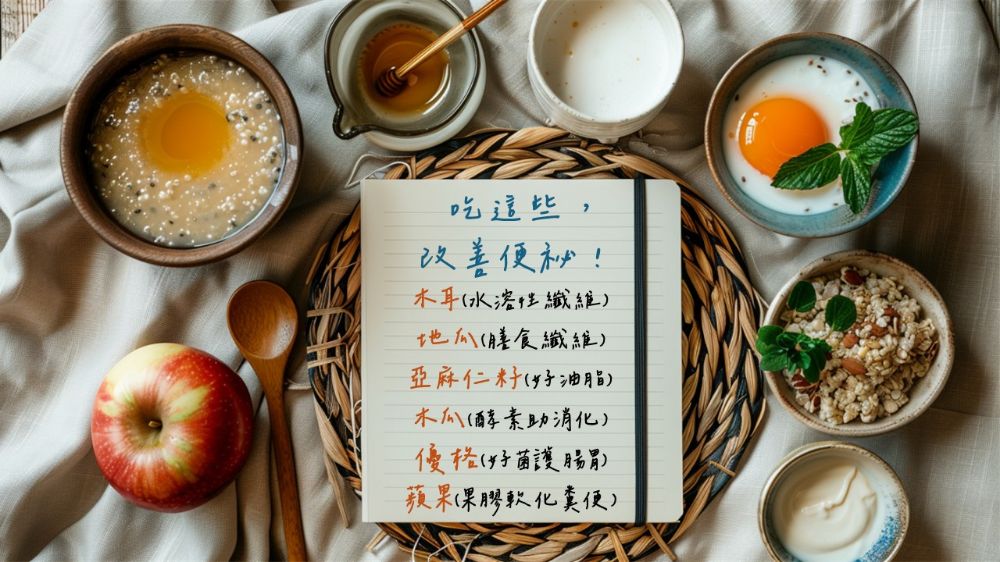 吃這些，
改善便祕！
木耳(水溶性纖維)
地瓜(膳食纖維)
亞麻仁籽(好油脂)
木瓜(酵素助消化)
優格(好菌護腸胃)
蘋果(果膠軟化糞便)